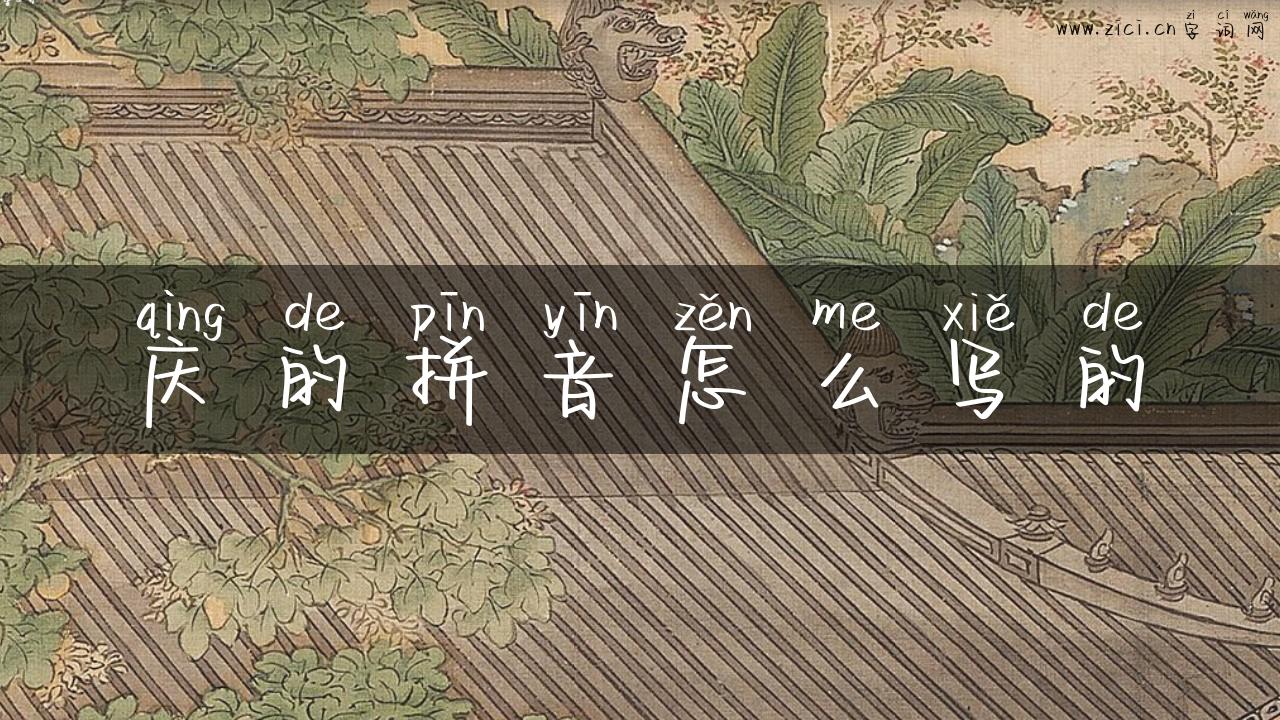 zì cí wǎng
www.zici.cn 字 词 网
qìng de pīn yīn zěn me xiě de
庆 的 拼 音 怎 么 写 的